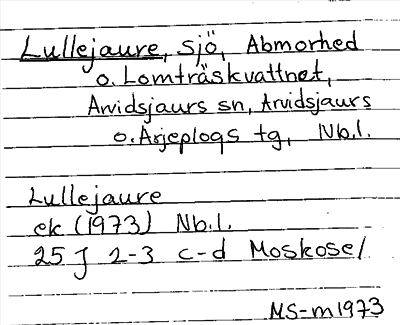 Lullejaure, sjö, Abmorhed
o. Lomträskvattnet,
Arvidsjaurs sn, Arvidsjaurs
o. Arjeplogs tg, Nb.l.
Lullejaure
ek (1973) Nb.l.
25 J 2-3 c-d Moskosel
MS-m1973